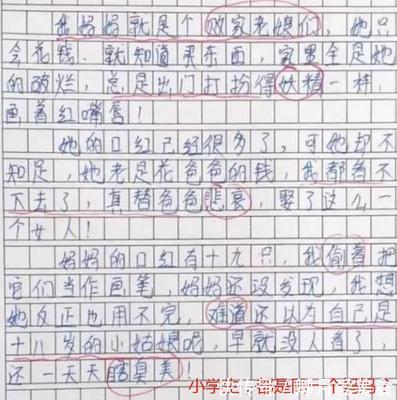 我好好就是个败家老娘们，她只
会花钱．就知道买东西，家里全是她
的破烂，总是出门打扮得妖精一样，
画着红嘴唇！
她的口红已经很多了，可她却不
知足，她老是花爸爸的钱，我都看不
下去了，真替爸爸悲哀，娶了这么一
个女人！
好好的口红有十九只，我偷着把
它们当作画笔，好好还没发现，我想
她反正也用不完，难道还以为自己是
十八岁的小姑娘呢，早就没人看了，
还一天天瞎臭美！
小学生 都是同一个妈妈